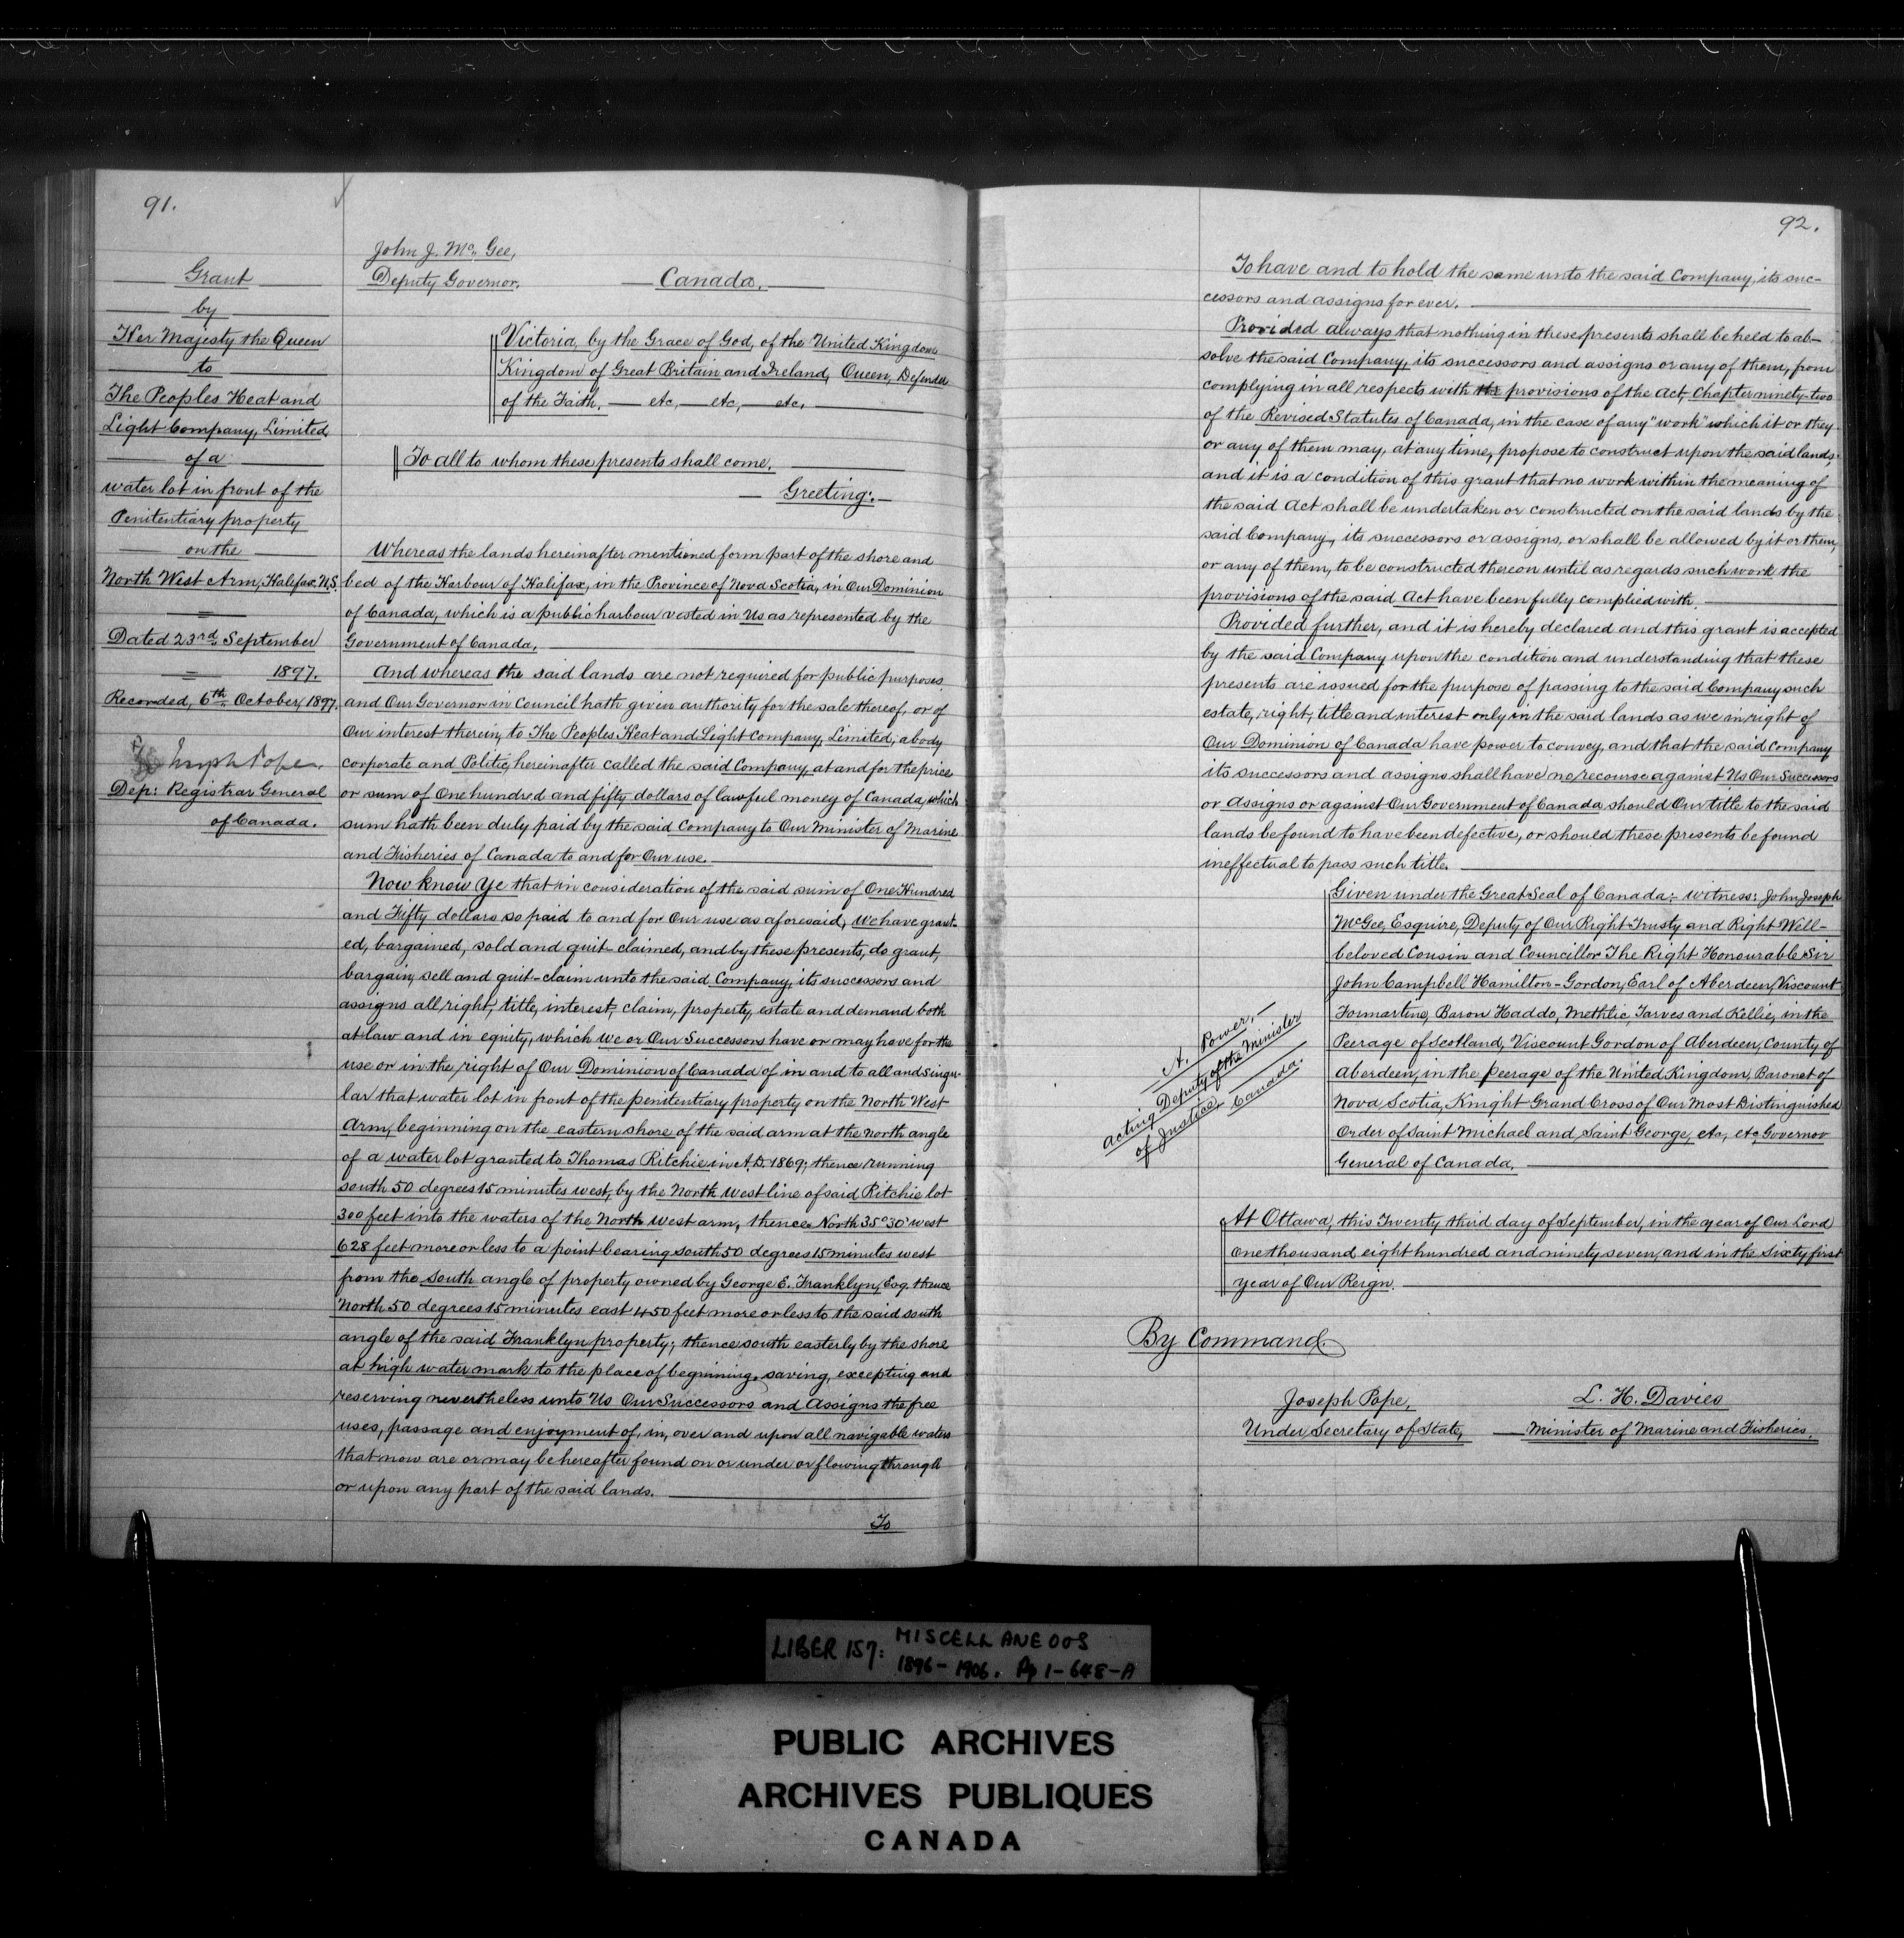 91.
Grant
by
Her Majesty the Queen
to
The Peoples Heat and
Light Company, Limited,
of a
water lot in front of the
Penitentiary property
on the
North West Arm, Halifax. N.S.
Dated 23rd September
1897.
Recorded, 6th October, 1897.
Joseph Pope.
Dep: Registrar General
of Canada.
John J. McGee,
Deputy Governor.
Canada.
Victoria, by the Grace of God, of the United Kingdom
Kingdom of Great Britain and Ireland, Queen, Defender
of the Faith. — etc, — etc, — etc,
To all to whom these presents shall come,
Greeting:—
Whereas the lands hereinafter mentioned form part of the shore and
bed of the Harbour of Halifax, in the Province of Nova Scotia, in Our Dominion
of Canada, which is a public harbour vested in Us as represented by the
Government of Canada,
And whereas the said lands are not required for public purposes
and Our Governor in Council hath given authority for the sale thereof, or of
Our interest therein, to The Peoples Heat and Light Company, Limited, a body
corporate and Politic, hereinafter called the said Company, at and for the price
or sum of One hundred and fifty dollars of lawful money of Canada, which
sum hath been duly paid by the said Company to Our Minister of Marine
and Fisheries of Canada to and for Our use.
Now know Ye that in consideration of the said sum of One Hundred
and Fifty dollars so paid to and for Our use as aforesaid, we have grant-
ed, bargained, sold and quit-claimed, and by these presents, do grant,
bargain, sell and quit-claim unto the said Company, its successors and
assigns all right, title, interest, claim, property, estate and demand both
at law and in equity, which we or Our Successors have or may have for the
use or in the right of Our Dominion of Canada of in and to all and singu-
lar that water lot in front of the penitentiary property on the North West
Arm, beginning on the eastern shore of the said arm at the north angle
of a water lot granted to Thomas Ritchie in A.D. 1869; thence running
south 50 degrees 15 minutes west, by the North west line of said Ritchie lot
300 feet into the waters of the North west arm, thence North 35° 30' west
628 feet more or less to a point bearing south 50 degrees 15 minutes west
from the south angle of property owned by George E. Franklyn, Esq. thence
North 50 degrees 15 minutes east 450 feet more or less to the said south
angle of the said Franklyn property; thence south easterly by the shore
at high water mark to the place of beginning. saving, excepting and
reserving nevertheless unto Us Our Successors and Assigns the free
uses, passage and enjoyment of, in, over and upon all navigable waters
that now are or may be hereafter found on or under or flowing through
or upon any part of the said lands.
To
92.
To have and to hold the same unto the said Company, its suc-
cessors and assigns for ever.
Provided always that nothing in these presents shall be held to ab-
solve the said Company, its successors and assigns or any of them, from
complying in all respects with the provisions of the Act, Chapter ninety-two
of the Revised Statutes of Canada, in the case of any "work" which it or they
or any of them may, at any time, propose to construct upon the said lands,
and it is a condition of this grant that no work within the meaning of
the said Act shall be undertaken or constructed on the said lands by the
said Company, its successors or assigns, or shall be allowed by it or them,
or any of them, to be constructed thereon until as regards such work the
provisions of the said Act have been fully complied with.
Provided further, and it is hereby declared and this grant is accepted
by the said Company upon the condition and understanding that these
presents are issued for the purpose of passing to the said Company such
estate, right, title and interest only in the said lands as we in right of
Our Dominion of Canada have power to convey, and that the said Company
its successors and assigns shall have no recourse against Us Our Successors
or Assigns or against Our Government of Canada should Our title to the said
lands be found to have been defective, or should these presents be found
ineffectual to pass such title.
Given under the Great Seal of Canada:- witness: John Joseph
McGee, Esquire, Deputy of Our Right Trusty and Right Well-
beloved Cousin and Councillor The Right Honourable Sir
John Campbell Hamilton-Gordon, Earl of Aberdeen, Viscount
Formartine, Baron Haddo, Methlic, Tarves and Kellie, in the
Peerage of Scotland, Viscount Gordon of Aberdeen, County of
Aberdeen, in the Peerage of the United Kingdom, Baronet of
Nova Scotia, Knight Grand Cross of Our Most Distinguished
Order of Saint Michael and Saint George, etc, etc, Governor
General of Canada.
A. Power,—
Acting Deputy of the Minister
of Justice, Canada.
At Ottawa, this Twenty third day of September, in the year of Our Lord
One thousand eight hundred and ninety seven, and in the Sixty first
year of Our Reign.
By Command.
Joseph Pope,
Under Secretary of State,
L. H. Davies
Minister of Marine and Fisheries.
LIBER 157: MISCELLANEOUS
1896-1906. Pp 1-648-A
PUBLIC ARCHIVES
ARCHIVES PUBLIQUES
CANADA